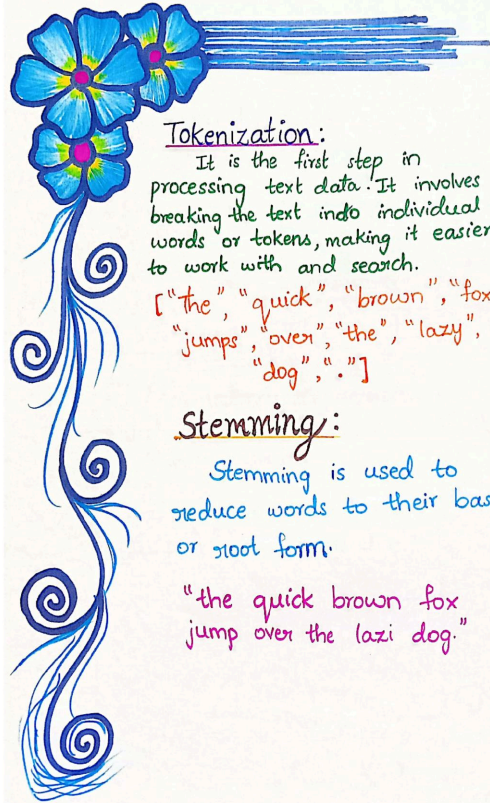 Tokenization:
It is the first step in
processing text data. It involves
breaking the text indo individual
words or tokens, making it easier
to work with and search.
["The", "quick", "brown", "fox
"jumps", "over", "the", "lazy",
"dog", "."]
Stemming:
Stemming is used to
reduce words to their bas
or root form.
"the quick brown fox
jump over the lazi dog."